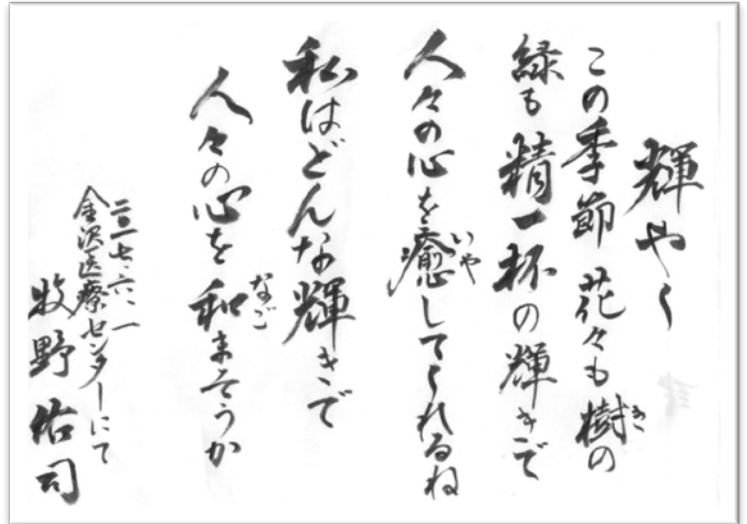 輝やく
この季節 花々も樹の
き
緑も精一杯の輝きで
人々の心を癒してくれるね
いや
私はどんな輝きで
人々の心を和まそうか
なご
二〇一七・六・一
金沢医療センターにて
牧野佑司